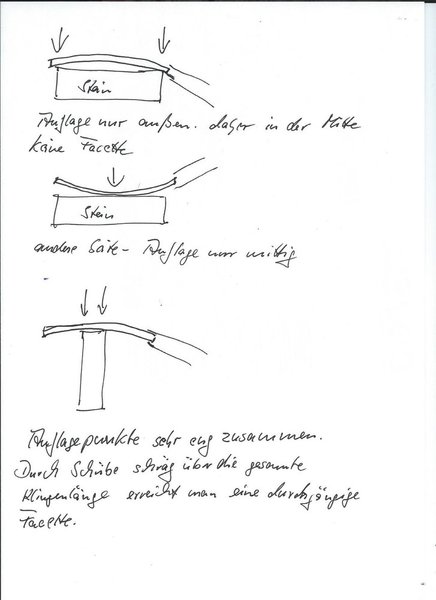 Stein
Auflage nur außen. daher in der Mitte
keine Facette
Stein
andere Seite - Auflage nur mittig
Auflagepunkte sehr eng zusammen.
Durch Schübe schräg über die gesamte
Klingenlänge erreicht man eine durchgängige
Facette.